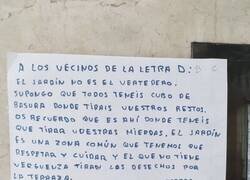 A LOS VECINOS DE LA LETRA D: B C
EL JARDÍN NO ES EL VERTEDERO.
SUPONGO QUE TODOS TENEIS CUBO DE
BASURA DONDE TIRAIS VUESTROS RESTOS.
OS RECUERDO QUE ES AHÍ DONDE TENEIS
QUE TIRAR VUESTRAS MIERDAS. EL JARDÍN
ES UNA ZONA COMÚN QUE TENEMOS QUE
RESPETAR Y CUIDAR Y EL QUE NO TIENE
VERGUENZA TIRAN LOS DESECHOS POR
LA TERRAZA